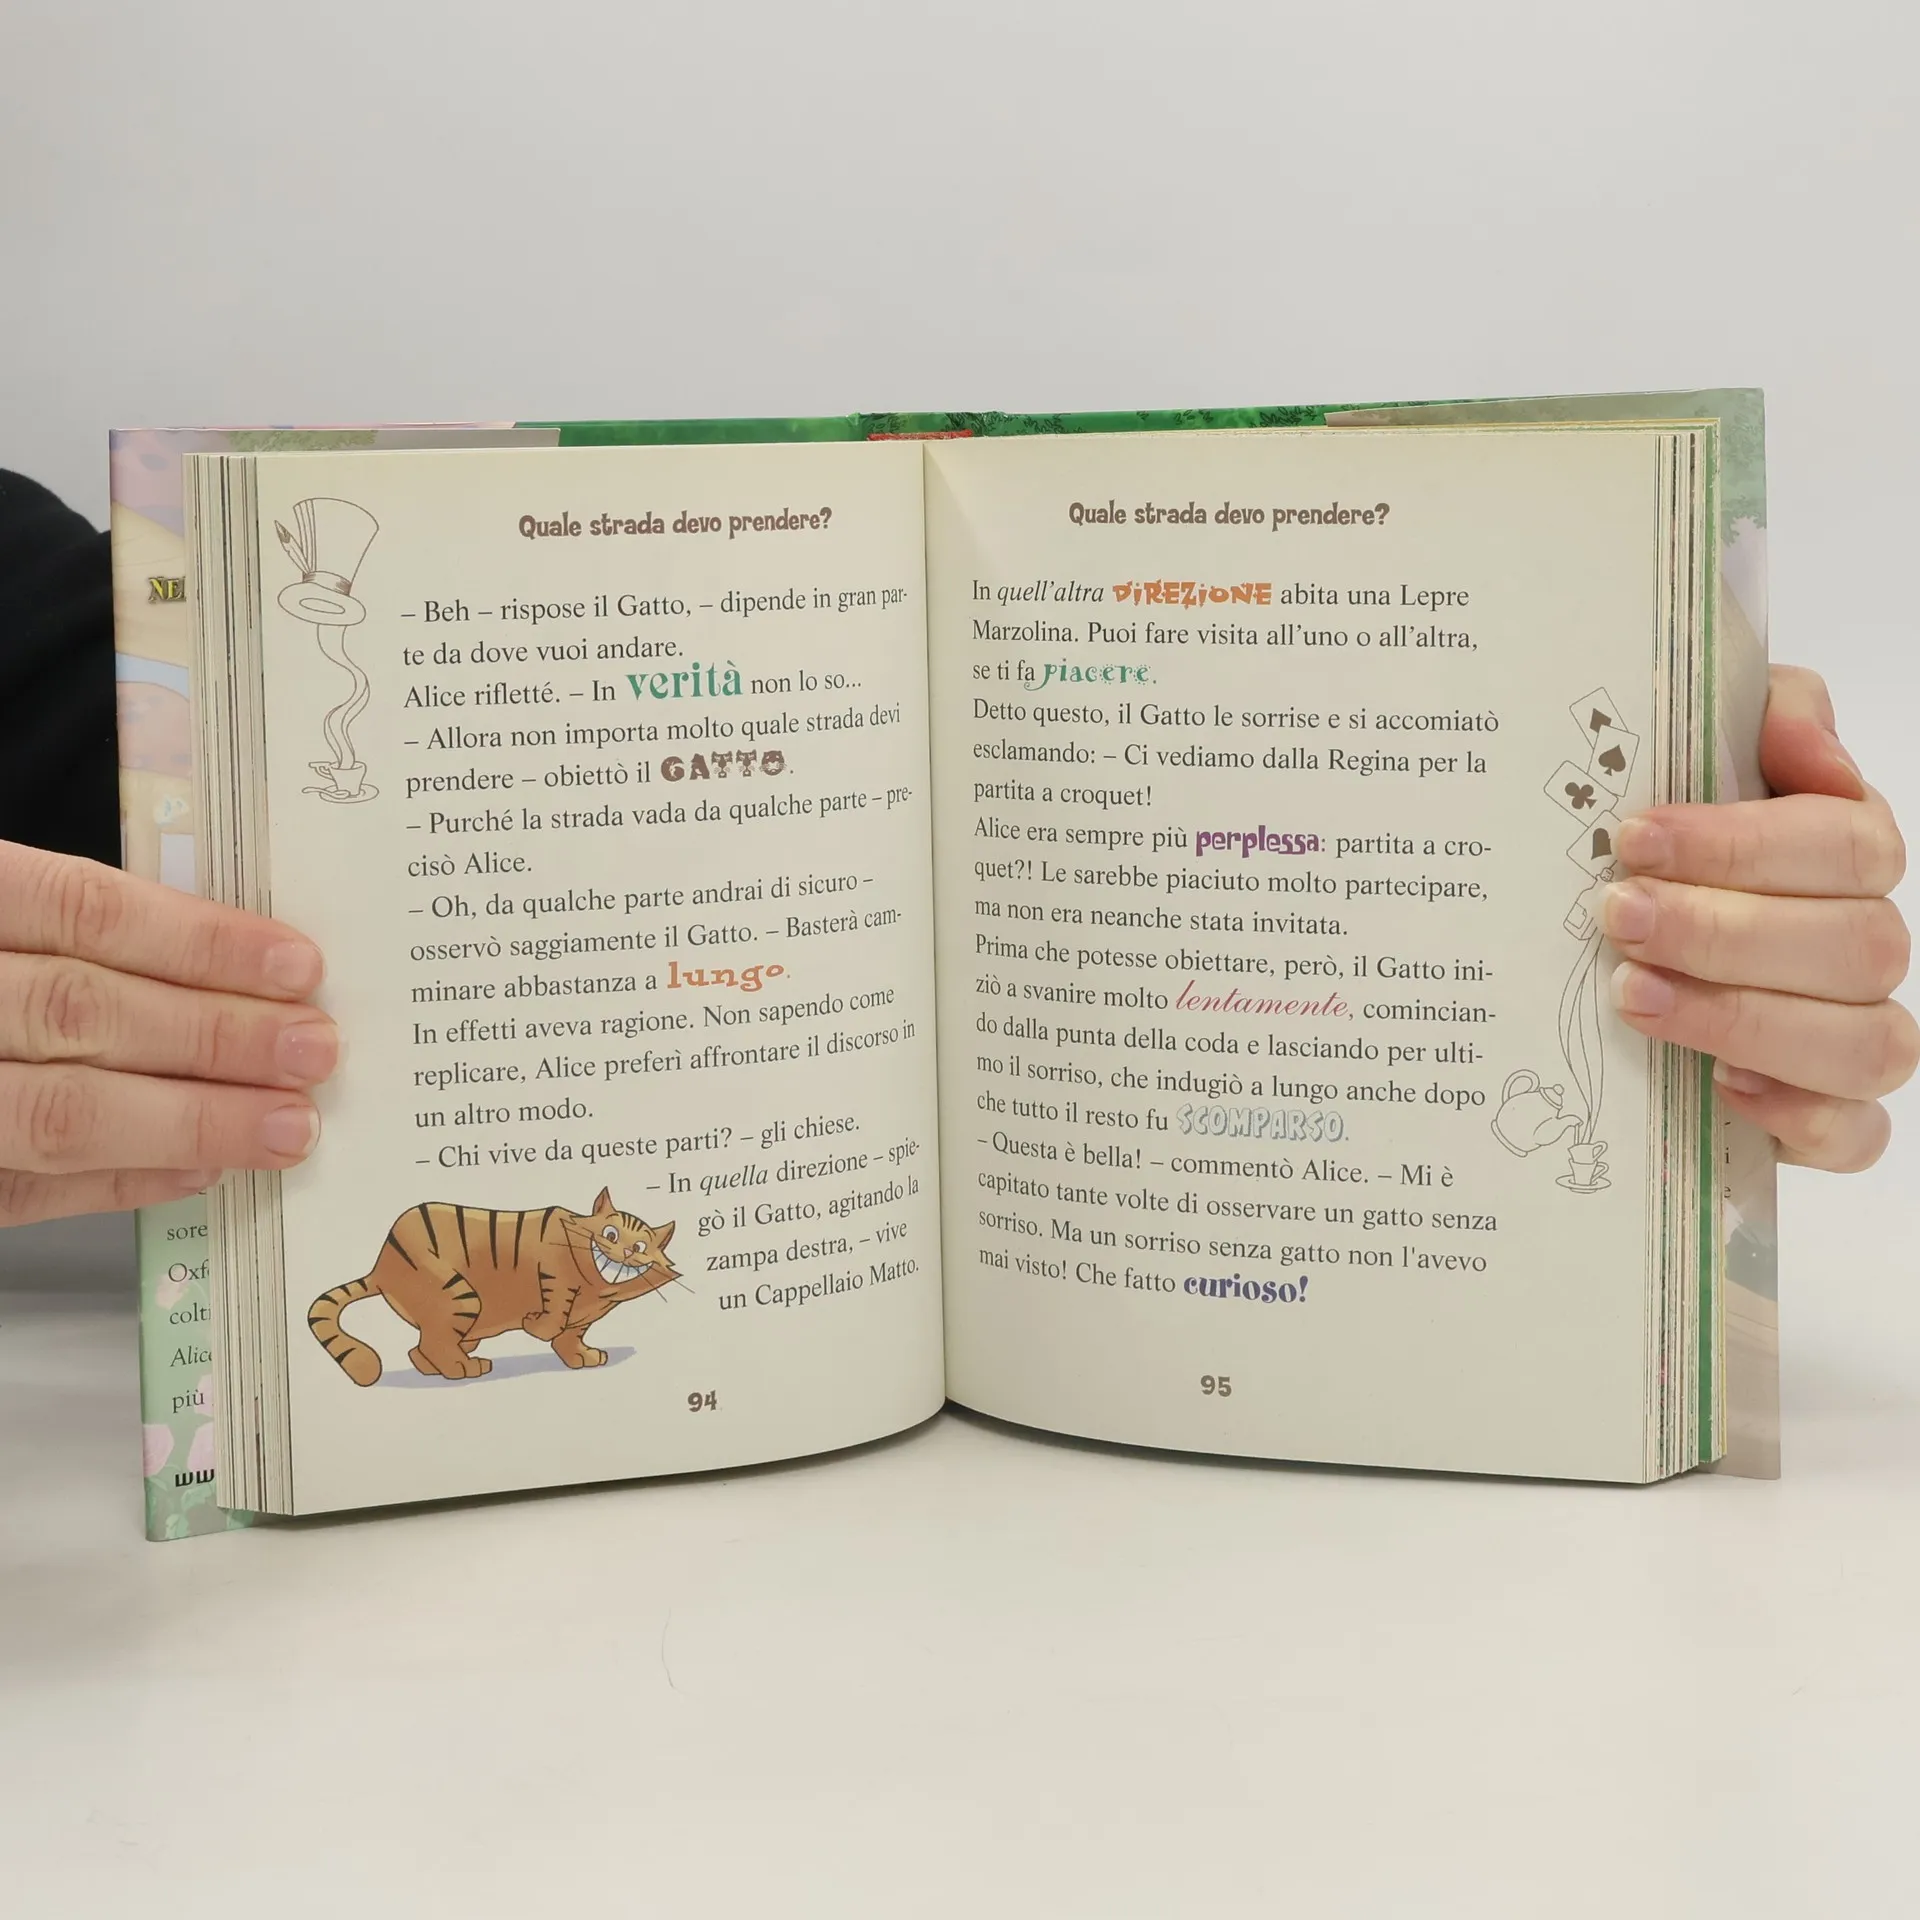 Quale strada devo prendere?
– Beh – rispose il Gatto, – dipende in gran par-
te da dove vuoi andare.
Alice rifletté. – In verità non lo so...
– Allora non importa molto quale strada devi
prendere – obiettò il GATTO.
– Purché la strada vada da qualche parte – pre-
cisò Alice.
– Oh, da qualche parte andrai di sicuro –
osservò saggiamente il Gatto. – Basterà cam-
minare abbastanza a lungo.
In effetti aveva ragione. Non sapendo come
replicare, Alice preferì affrontare il discorso in
un altro modo.
– Chi vive da queste parti? – gli chiese.
– In quella direzione – spie-
gò il Gatto, agitando la
zampa destra, – vive
un Cappellaio Matto.
94
Quale strada devo prendere?
In quell'altra DIREZIONE abita una Lepre
Marzolina. Puoi fare visita all'uno o all'altra,
se ti fa piacere.
Detto questo, il Gatto le sorrise e si accomiatò
esclamando: – Ci vediamo dalla Regina per la
partita a croquet!
Alice era sempre più perplessa: partita a cro-
quet?! Le sarebbe piaciuto molto partecipare,
ma non era neanche stata invitata.
Prima che potesse obiettare, però, il Gatto ini-
ziò a svanire molto lentamente, comincian-
do dalla punta della coda e lasciando per ulti-
mo il sorriso, che indugiò a lungo anche dopo
che tutto il resto fu SCOMPARSO.
– Questa è bella! – commentò Alice. – Mi è
capitato tante volte di osservare un gatto senza
sorriso. Ma un sorriso senza gatto non l'avevo
mai visto! Che fatto curioso!
95
NE
sore
Oxf
colt
Alic
più
ww